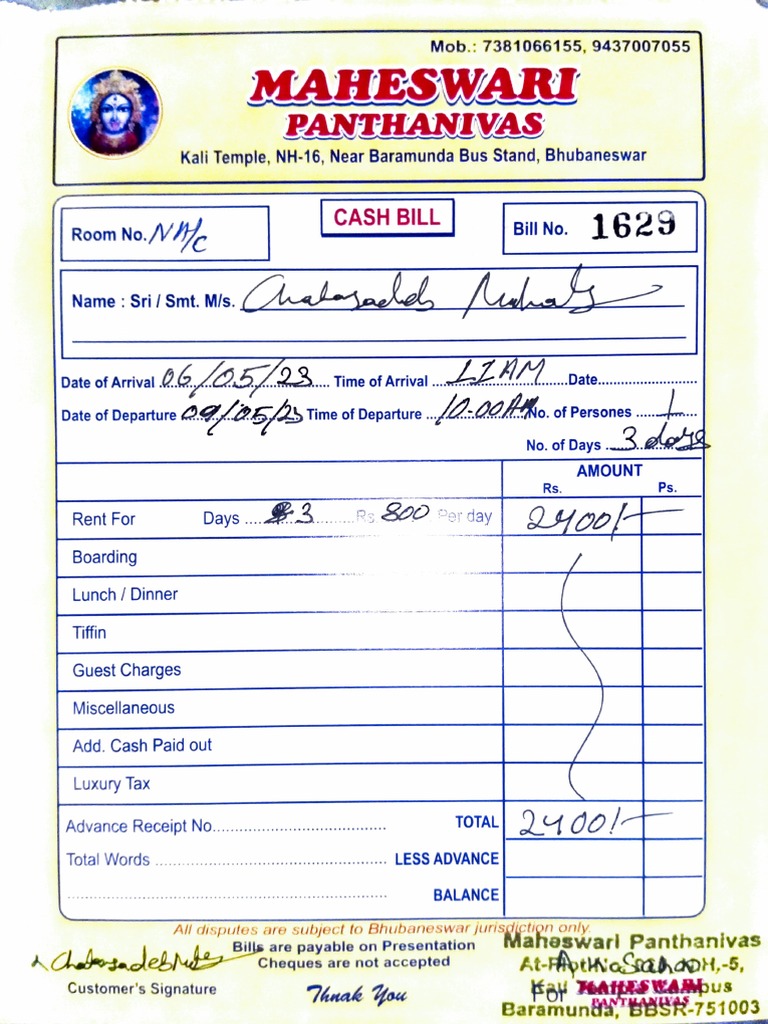 Mob.: 7381066155, 9437007055
MAHESWARI
PANTHANIVAS
Kali Temple, NH-16, Near Baramunda Bus Stand, Bhubaneswar
Room No. N A/c
CASH BILL
Bill No. 1629
Name : Sri / Smt. M/s.
Date of Arrival 06/05/23 Time of Arrival 11AM Date
Date of Departure 09/05/23 Time of Departure 10-00AM No. of Persones 1
No. of Days 3 days
AMOUNT
Rs. Ps.
Rent For Days 3 Rs. 800 Per day 2400/-
Boarding
Lunch / Dinner
Tiffin
Guest Charges
Miscellaneous
Add. Cash Paid out
Luxury Tax
Advance Receipt No. TOTAL 2400/-
Total Words LESS ADVANCE
BALANCE
All disputes are subject to Bhubaneswar jurisdiction only.
Bills are payable on Presentation
Cheques are not accepted
Customer's Signature
Thnak You
Maheswari Panthanivas
For MAHESWARI
PANTHANIVAS
Baramunda, BBSR-751003